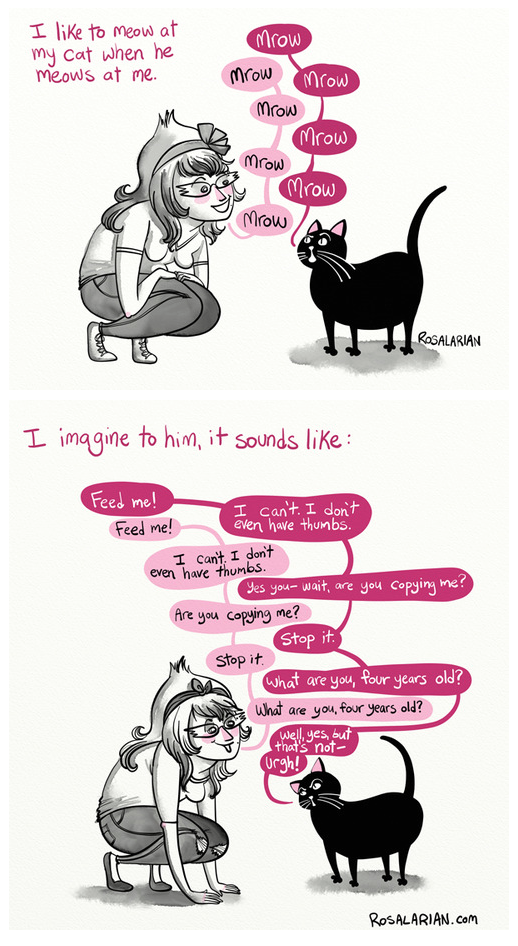 I like to meow at
my cat when he
meows at me.
Mrow
Mrow
Mrow
Mrow
Mrow
Mrow
Mrow
Mrow
ROSALARIAN
I imagine to him, it sounds like:
Feed me!
Feed me!
I can't. I don't
even have thumbs.
I can't. I don't
even have thumbs.
Yes you— wait, are you copying me?
Are you copying me?
Stop it.
Stop it.
What are you, four years old?
What are you, four years old?
Well, yes, but
that's not—
Urgh!
ROSALARIAN.com